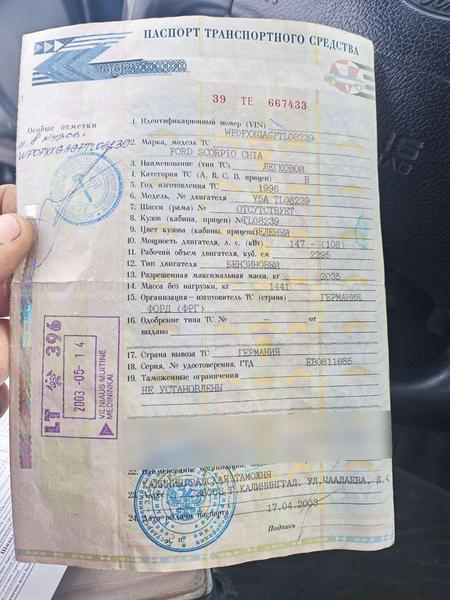 ПАСПОРТ ТРАНСПОРТНОГО СРЕДСТВА
39 ТЕ 667433
Особые отметки
WFOFXXGAGFTL08239
1. Идентификационный номер (VIN)
WFOFXXGAGFTL08239
2. Марка, модель ТС
FORD SCORPIO GHIA
3. Наименование (тип ТС) ЛЕГКОВОЙ
4. Категория ТС (A, B, C, D, прицеп) В
5. Год изготовления ТС 1996
6. Модель, № двигателя УБА TL08239
7. Шасси (рама) № ОТСУТСТВУЕТ
8. Кузов (кабина, прицеп) № TL08239
9. Цвет кузова (кабины, прицепа) ЗЕЛЕНЫЙ
10. Мощность двигателя, л. с. (кВт) 147 - (108)
11. Рабочий объем двигателя, куб. см 2295
12. Тип двигателя БЕНЗИНОВЫЙ
13. Разрешенная максимальная масса, кг 2035
14. Масса без нагрузки, кг 1441
15. Организация — изготовитель ТС (страна) ГЕРМАНИЯ
ФОРД (ФРГ)
16. Одобрение типа ТС № – от
выдано
17. Страна вывоза ТС ГЕРМАНИЯ
18. Серия, № удостоверения, ГТД ЕВ0811985
19. Таможенные ограничения
НЕ УСТАНОВЛЕНЫ
LT 396
2003 -05- 14
VILNIAUS MUITINĖ
MEDININKAI
22. Наименование организации,
КАЛИНИНГРАДСКАЯ ТАМОЖНЯ
23. Адрес 236008 Г.КАЛИНИНГРАД, УЛ.ЧААЛАЕВА, Д.4
24. Дата выдачи паспорта 17.04.2003
Подпись